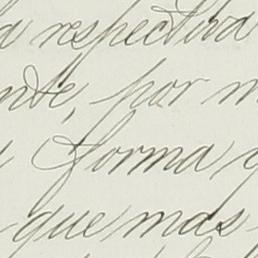 a respectiva
nte, por m
forma q
que mas